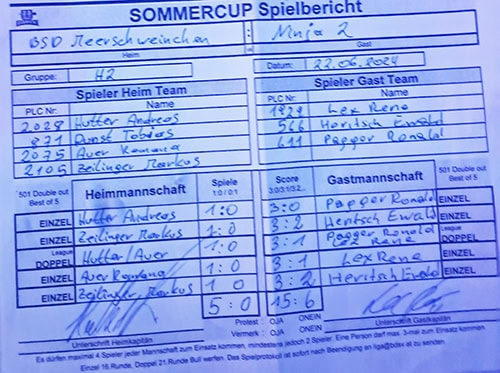 SOMMERCUP Spielbericht
BSD Meerschweinchen : Muja 2
Heim Gast
Gruppe: H2 Datum: 22.06.2024
Spieler Heim Team Spieler Gast Team
PLC Nr. Name PLC Nr. Name
2028 Hutter Andreas 1929 Lex Rene
871 Dunst Tobias 566 Heritsch Ewald
2075 Auer Romana 611 Papper Ronald
2105 Zeilinger Markus
501 Double out Best of 5 Heimmannschaft Spiele 1:0 / 0:1 Score 3:0/3:1/3:2... Gastmannschaft 501 Double out Best of 5
EINZEL Hutter Andreas 1:0 3:0 Papper Ronald EINZEL
EINZEL Zeilinger Markus 1:0 3:2 Heritsch Ewald EINZEL
League DOPPEL Hutter/Auer 1:0 3:1 Papper Ronald Lex Rene League DOPPEL
EINZEL Auer Romana 1:0 3:1 Lex Rene EINZEL
EINZEL Zeilinger Markus 1 0 3:2 Heritsch Ewald EINZEL
5:0 15:6
Protest : OJA ONEIN
Unterschrift Heimkapitän Vermerk : OJA ONEIN Unterschrift Gastkapitän
Es dürfen maximal 4 Spieler jeder Mannschaft zum Einsatz kommen, mindestens jedoch 2 Spieler. Eine Person darf max. 3-mal zum Einsatz kommen
Einzel 16.Runde, Doppel 21.Runde Bull werfen. Das Spielprotokoll ist sofort nach Beendigung an liga@bdsv.at zu senden.